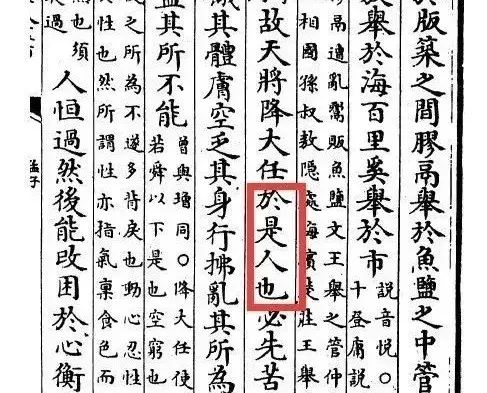 於版築之間膠鬲舉於魚鹽之中管
舉於海百里奚舉於市
說音悅○
十登庸說
鬲遭亂鬻販魚鹽文王舉之管仲
相國孫叔敖隱處海濱楚莊王舉
故天將降大任於是人也必先苦
餓其體膚空乏其身行拂亂其所為
益其所不能
曾與增同○降大任使
若舜以下是也空窮也
之所為不遂多背戾也動心忍性
性也然所謂性亦指氣稟食色而
也須
過
人恒過然後能改困於心衡
孟子